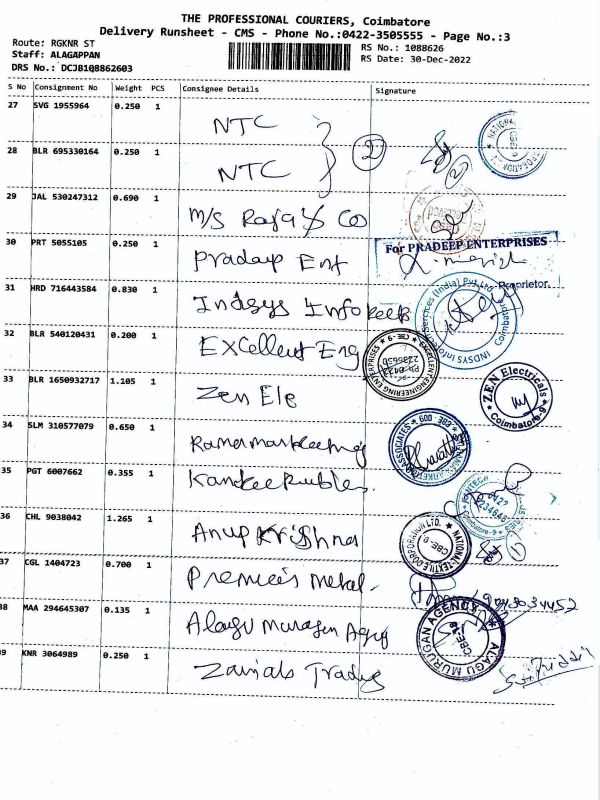 THE PROFESSIONAL COURIERS, Coimbatore
Delivery Runsheet - CMS - Phone No.:0422-3505555 - Page No.:3
Route: RGKNR ST
Staff: ALAGAPPAN
DRS No.: DCJB108862603
RS No.: 1088626
RS Date: 30-Dec-2022
S No Consignment No Weight PCS Consignee Details Signature
27 SVG 1955964 0.250 1 NTC
28 BLR 695330164 0.250 1 NTC 2
29 JAL 530247312 0.690 1 M/S Raja & Co
30 PRT 5055105 0.250 1 Pradeep Ent
For PRADEEP ENTERPRISES
Proprietor.
31 HRD 716443584 0.830 1 Indsys Infotech
32 BLR 540120431 0.200 1 Excellent Eng
EXCELLENT ENGINEERING ENTERPRISES CBE-9
33 BLR 1650932717 1.105 1 Zen Ele
ZEN Electricals Coimbatore-9
34 SLM 310577079 0.650 1 Ramamarketing
35 PGT 6007662 0.355 1
36 CHL 9038042 1.265 1 Anup Krishna
NATIONAL TEXTILE CORPORATION LTD. CBE-9
37 CGL 1404723 0.700 1 Premier's Metal
38 MAA 294645307 0.135 1 Alagu Murugan Agency
ALAGU MURUGAN AGENCY
39 KNR 3064989 0.250 1 Zainab Trading